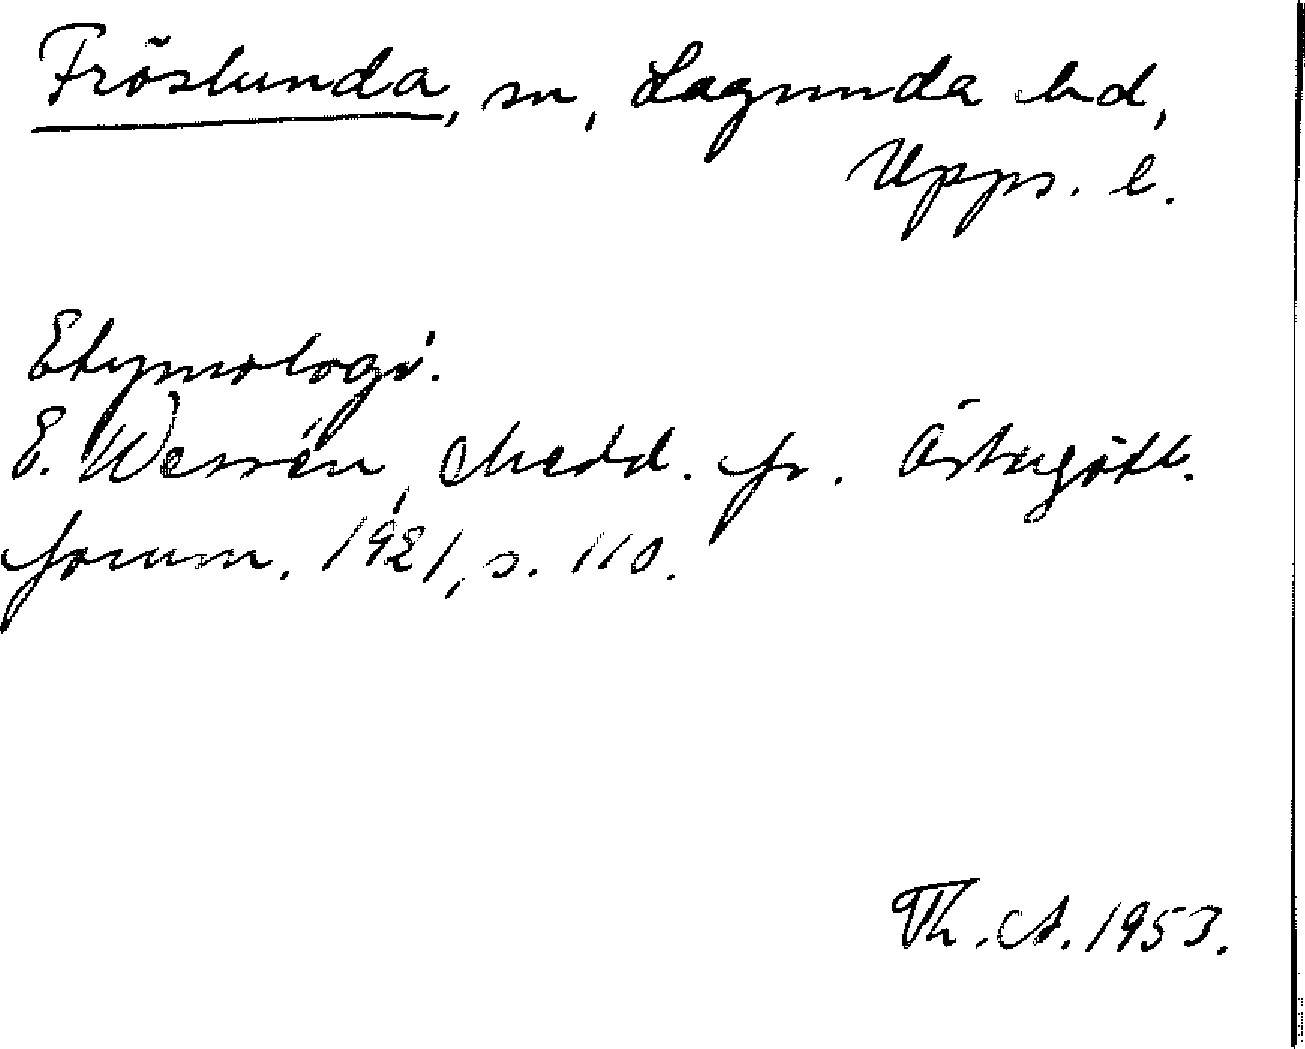 Fröslunda, sn, Lagunda hd,
Upps. l.
Etymologi.
E. Wessén, Medd. fr. Östergötl.
fornm. 1921, s. 110.
Th. A. 1953.